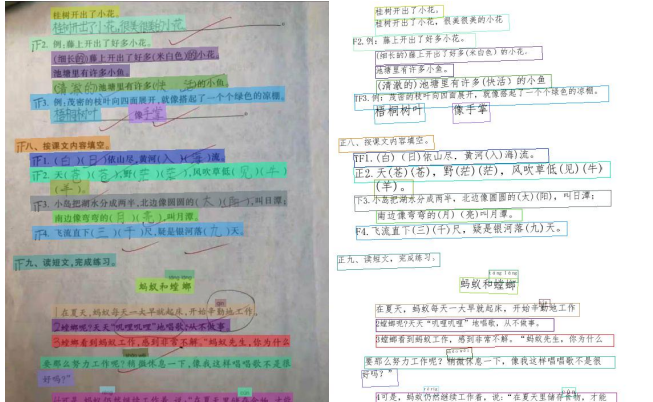 桂树开出了小花。
桂树开出了小花,很美很美的小花
2. 例:藤上开出了好多小花。
(细长的)藤上开出了好多(米白色)的小花。
池塘里有许多小鱼。
(清澈的)池塘里有许多(快 活)的小鱼。
3. 例:茂密的枝叶向四面展开,就像搭起了一个个绿色的凉棚。
梧桐树叶 像手掌
八、按课文内容填空。
1. (白)(日)依山尽,黄河(入)(海)流。
2. 天(苍)(苍),野(茫)(茫),风吹草低(见)(牛)
(羊)。
3. 小岛把湖水分成两半,北边像圆圆的(太)(阳),叫日潭;
南边像弯弯的(月)(亮),叫月潭。
4. 飞流直下(三)(千)尺,疑是银河落(九)天。
九、读短文,完成练习。
táng láng
蚂蚁和螳螂
在夏天,蚂蚁每天一大早就起床,开始辛勤地工作
2螳螂呢?天天“叽哩叽哩”地唱歌,从不做事。
3螳螂看到蚂蚁工作,感到非常不解。“蚂蚁先生,你为什么
要那么努力工作呢?稍微休息一下,像我这样唱唱歌不是很
好吗?”
4可是,蚂蚁仍然继续工作着,说:“在夏天里储存食物,才能
桂树开出了小花。
桂树开出了小花,很美很美的小花
F2. 例:藤上开出了好多小花。
(细长的)藤上开出了好多(米白色)的小花。
池塘里有许多小鱼。
(清澈的)池塘里有许多(快活)的小鱼
TF3. 例:茂密的枝叶向四面展开,就像搭起了一个个绿色的凉棚。
梧桐树叶 像手掌
正八、按课文内容填空。
TF1. (白)(日)依山尽,黄河(入)海)流。
正2. 天(苍)(苍),野(茫)(茫),风吹草低(见)(牛)
(羊)。
下3. 小岛把湖水分成两半,北边像圆圆的(太)(阳),叫日潭;
南边像弯弯的(月)(亮)叫月潭。
F4. 飞流直下(三)(千)尺,疑是银河落(九)天。
正九、读短文,完成练习。
táng láng
蚂蚁和螳螂
在夏天,蚂蚁每天一大早就起床,开始辛勤地工作
2螳螂呢?天天“叽哩叽哩”地唱歌,从不做事。
3螳螂看到蚂蚁工作,感到非常不解。“蚂蚁先生,你为什么
要那么努力工作呢?稍微休息一下,像我这样唱唱歌不是很
好吗?”
4可是,蚂蚁仍然继续工作着,说:“在夏天里储存食物,才能